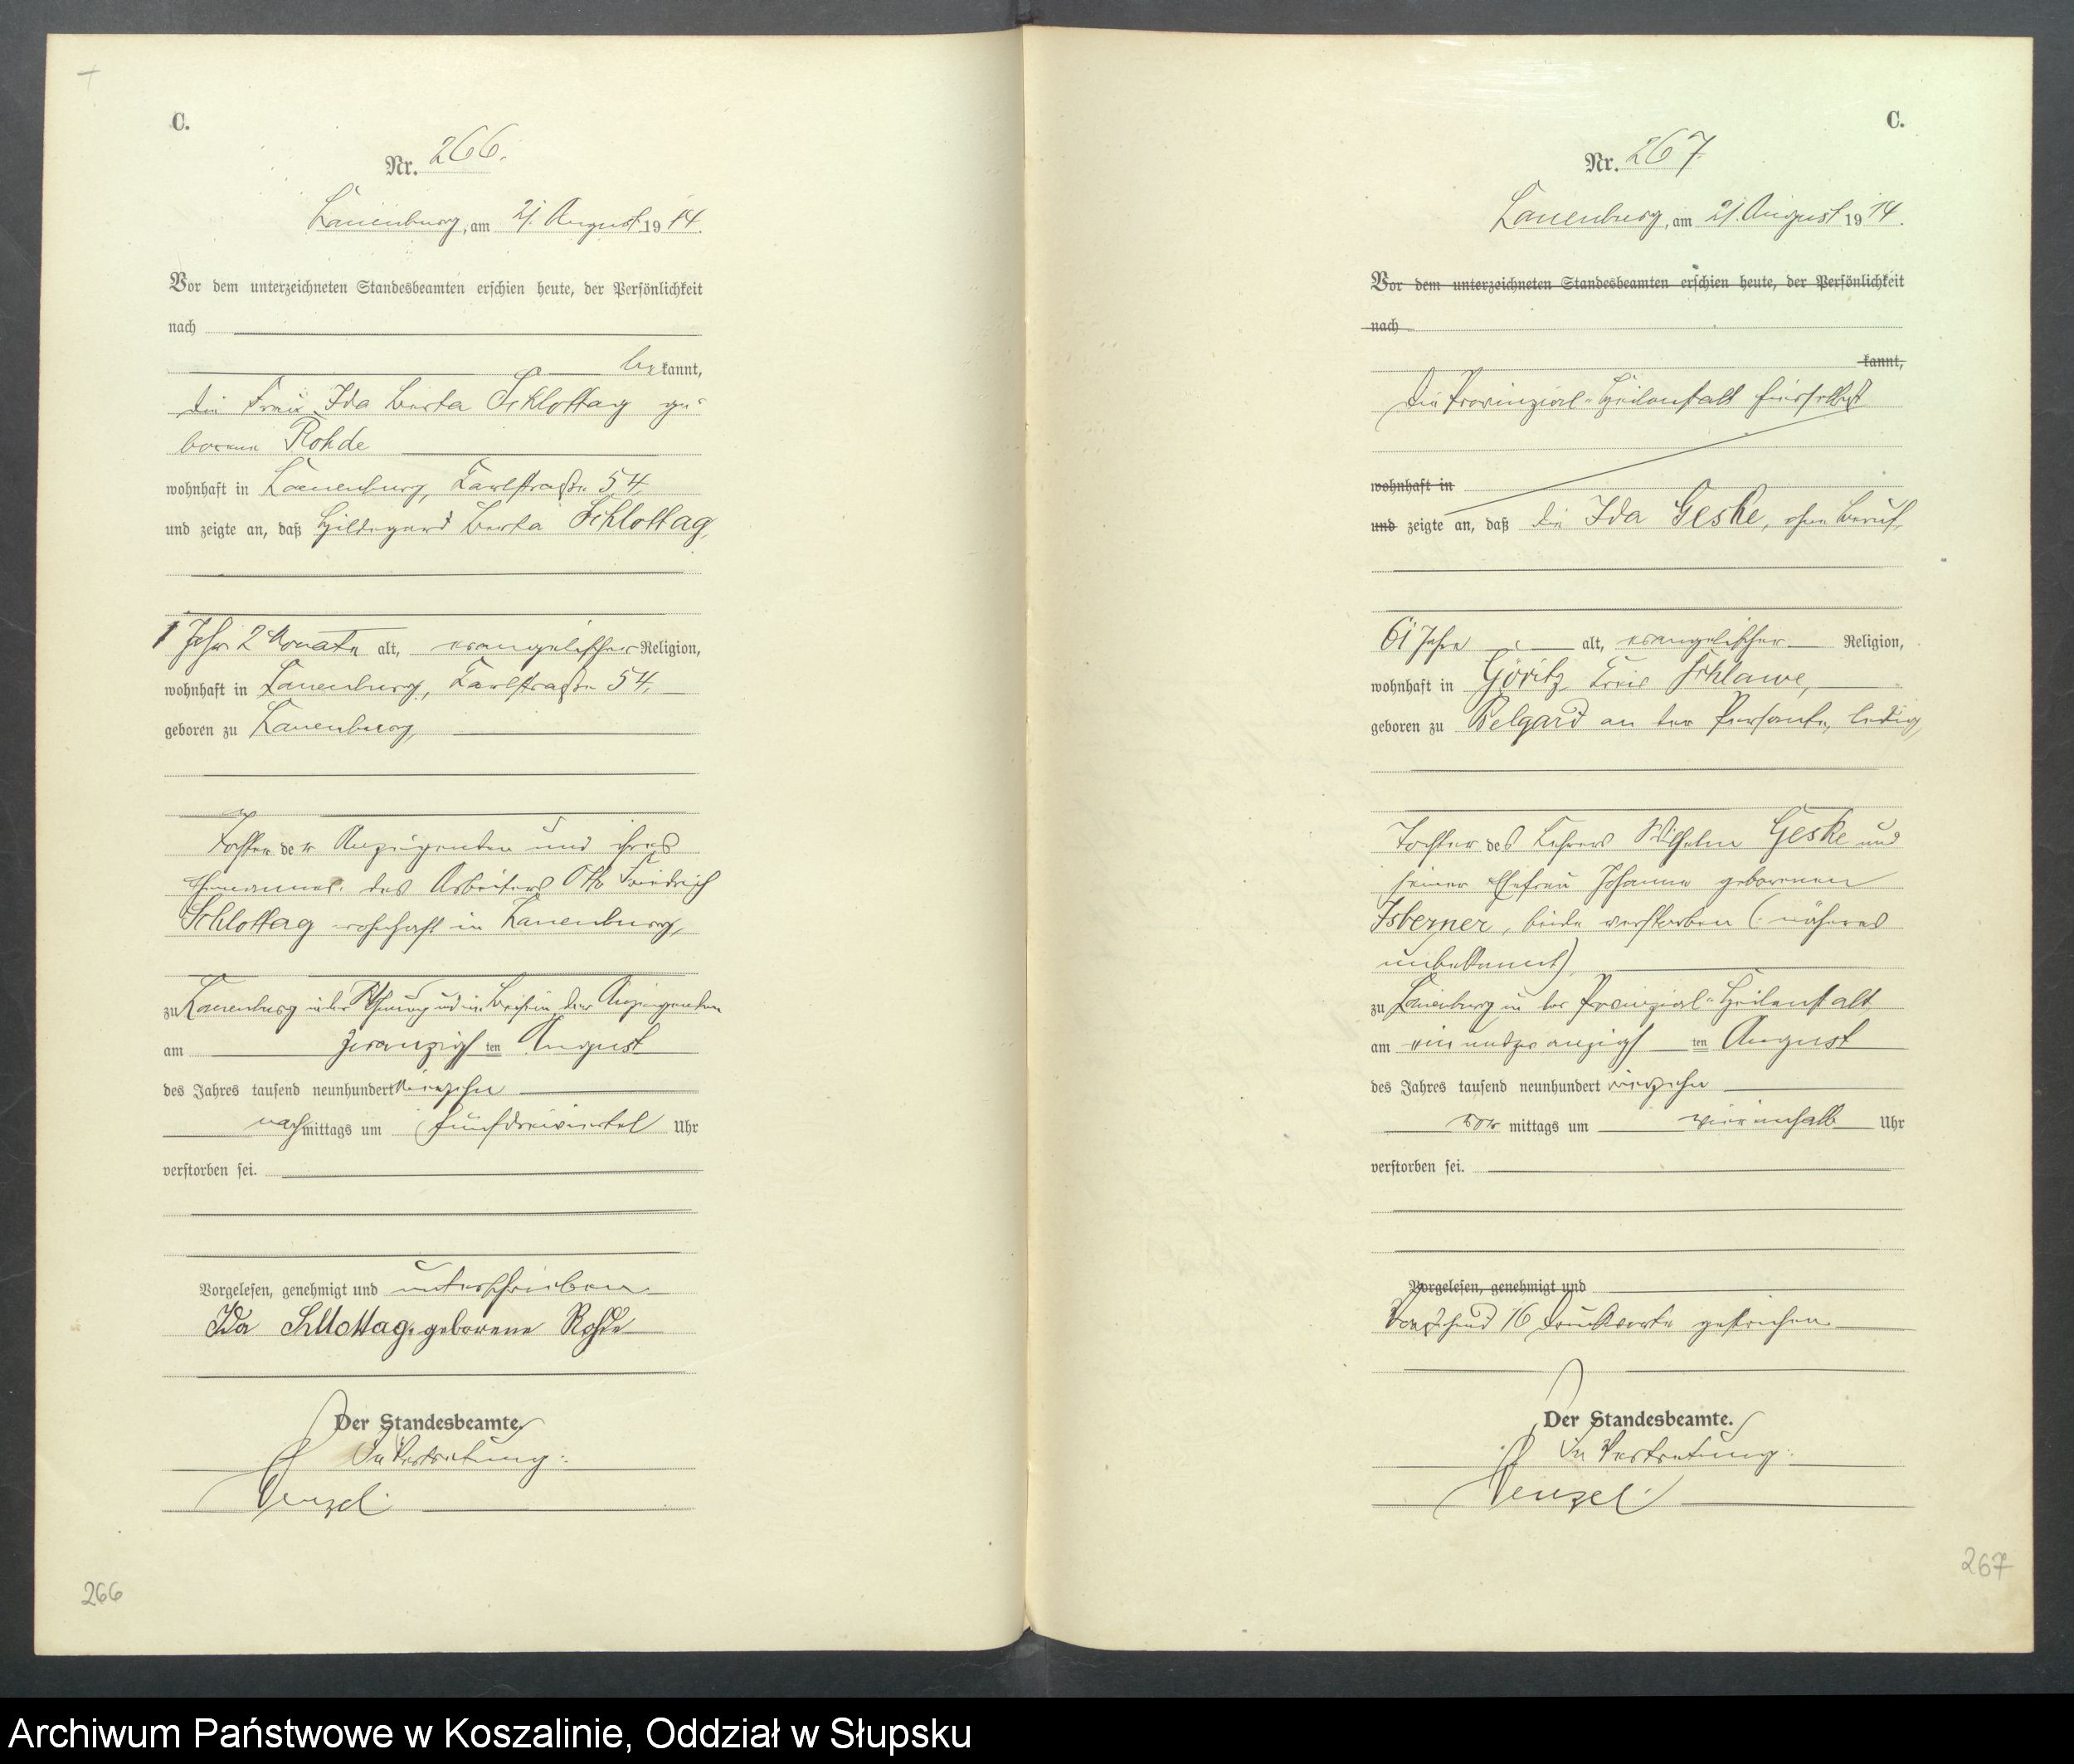 C.
Nr. 266.
Lauenburg, am 21. August 1914.
Vor dem unterzeichneten Standesbeamten erschien heute, der Persönlichkeit
nach
bekannt,
die Frau Ida Berta Schlottag ge-
borene Rohde
wohnhaft in Lauenburg, Karlstraße 54,
und zeigte an, daß Hildegard Berta Schlottag,
1 Jahr 2 Monate alt, evangelischer Religion,
wohnhaft in Lauenburg, Karlstraße 54,
geboren zu Lauenburg,
Tochter der Anzeigenden und ihres
Ehemannes des Arbeiters Otto Friedrich
Schlottag wohnhaft in Lauenburg,
zu Lauenburg in der Wohnung und in Beisein der Anzeigenden
am zwanzigsten August
des Jahres tausend neunhundert vierzehn
nachmittags um fünfdreiviertel Uhr
verstorben sei.
Vorgelesen, genehmigt und unterschrieben
Ida Schlottag, geborene Rohde
Der Standesbeamte.
In Vertretung:
Wenzel
266
C.
Nr. 267
Lauenburg, am 21. August 1914.
Vor dem unterzeichneten Standesbeamten erschien heute, der Persönlichkeit
nach
kannt,
Die Provinzial-Heilanstalt hierselbst
wohnhaft in
und zeigte an, daß die Ida Geske, ohne Beruf,
61 Jahre alt, evangelischer Religion,
wohnhaft in Göritz, Kreis Schlawe,
geboren zu Belgard an der Persante, ledig,
Tochter des Lehrers Wilhelm Geske und
seiner Ehefrau Johanne geborenen
Isberner, beide verstorben (näheres
unbekannt)
zu Lauenburg in der Provinzial-Heilanstalt
am einundzwanzigsten August
des Jahres tausend neunhundert vierzehn
vor mittags um vier einhalb Uhr
verstorben sei.
Vorgelesen, genehmigt und
Vorstehend 16 Druckworte gestrichen.
Der Standesbeamte.
In Vertretung:
Wenzel
267
Archiwum Państwowe w Koszalinie, Oddział w Słupsku